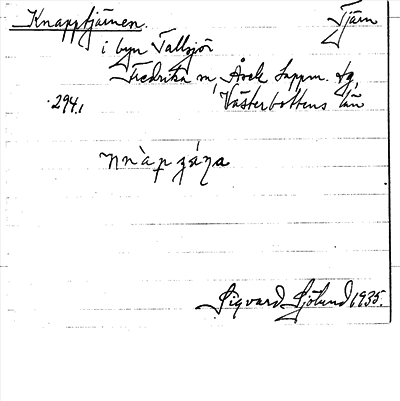 Knapptjärnen. Tjärn
i byn Tallsjö
Fredrika sn, Åsele Lappm. tg,
294. Västerbottens län
Sigvard Sjölund 1935.